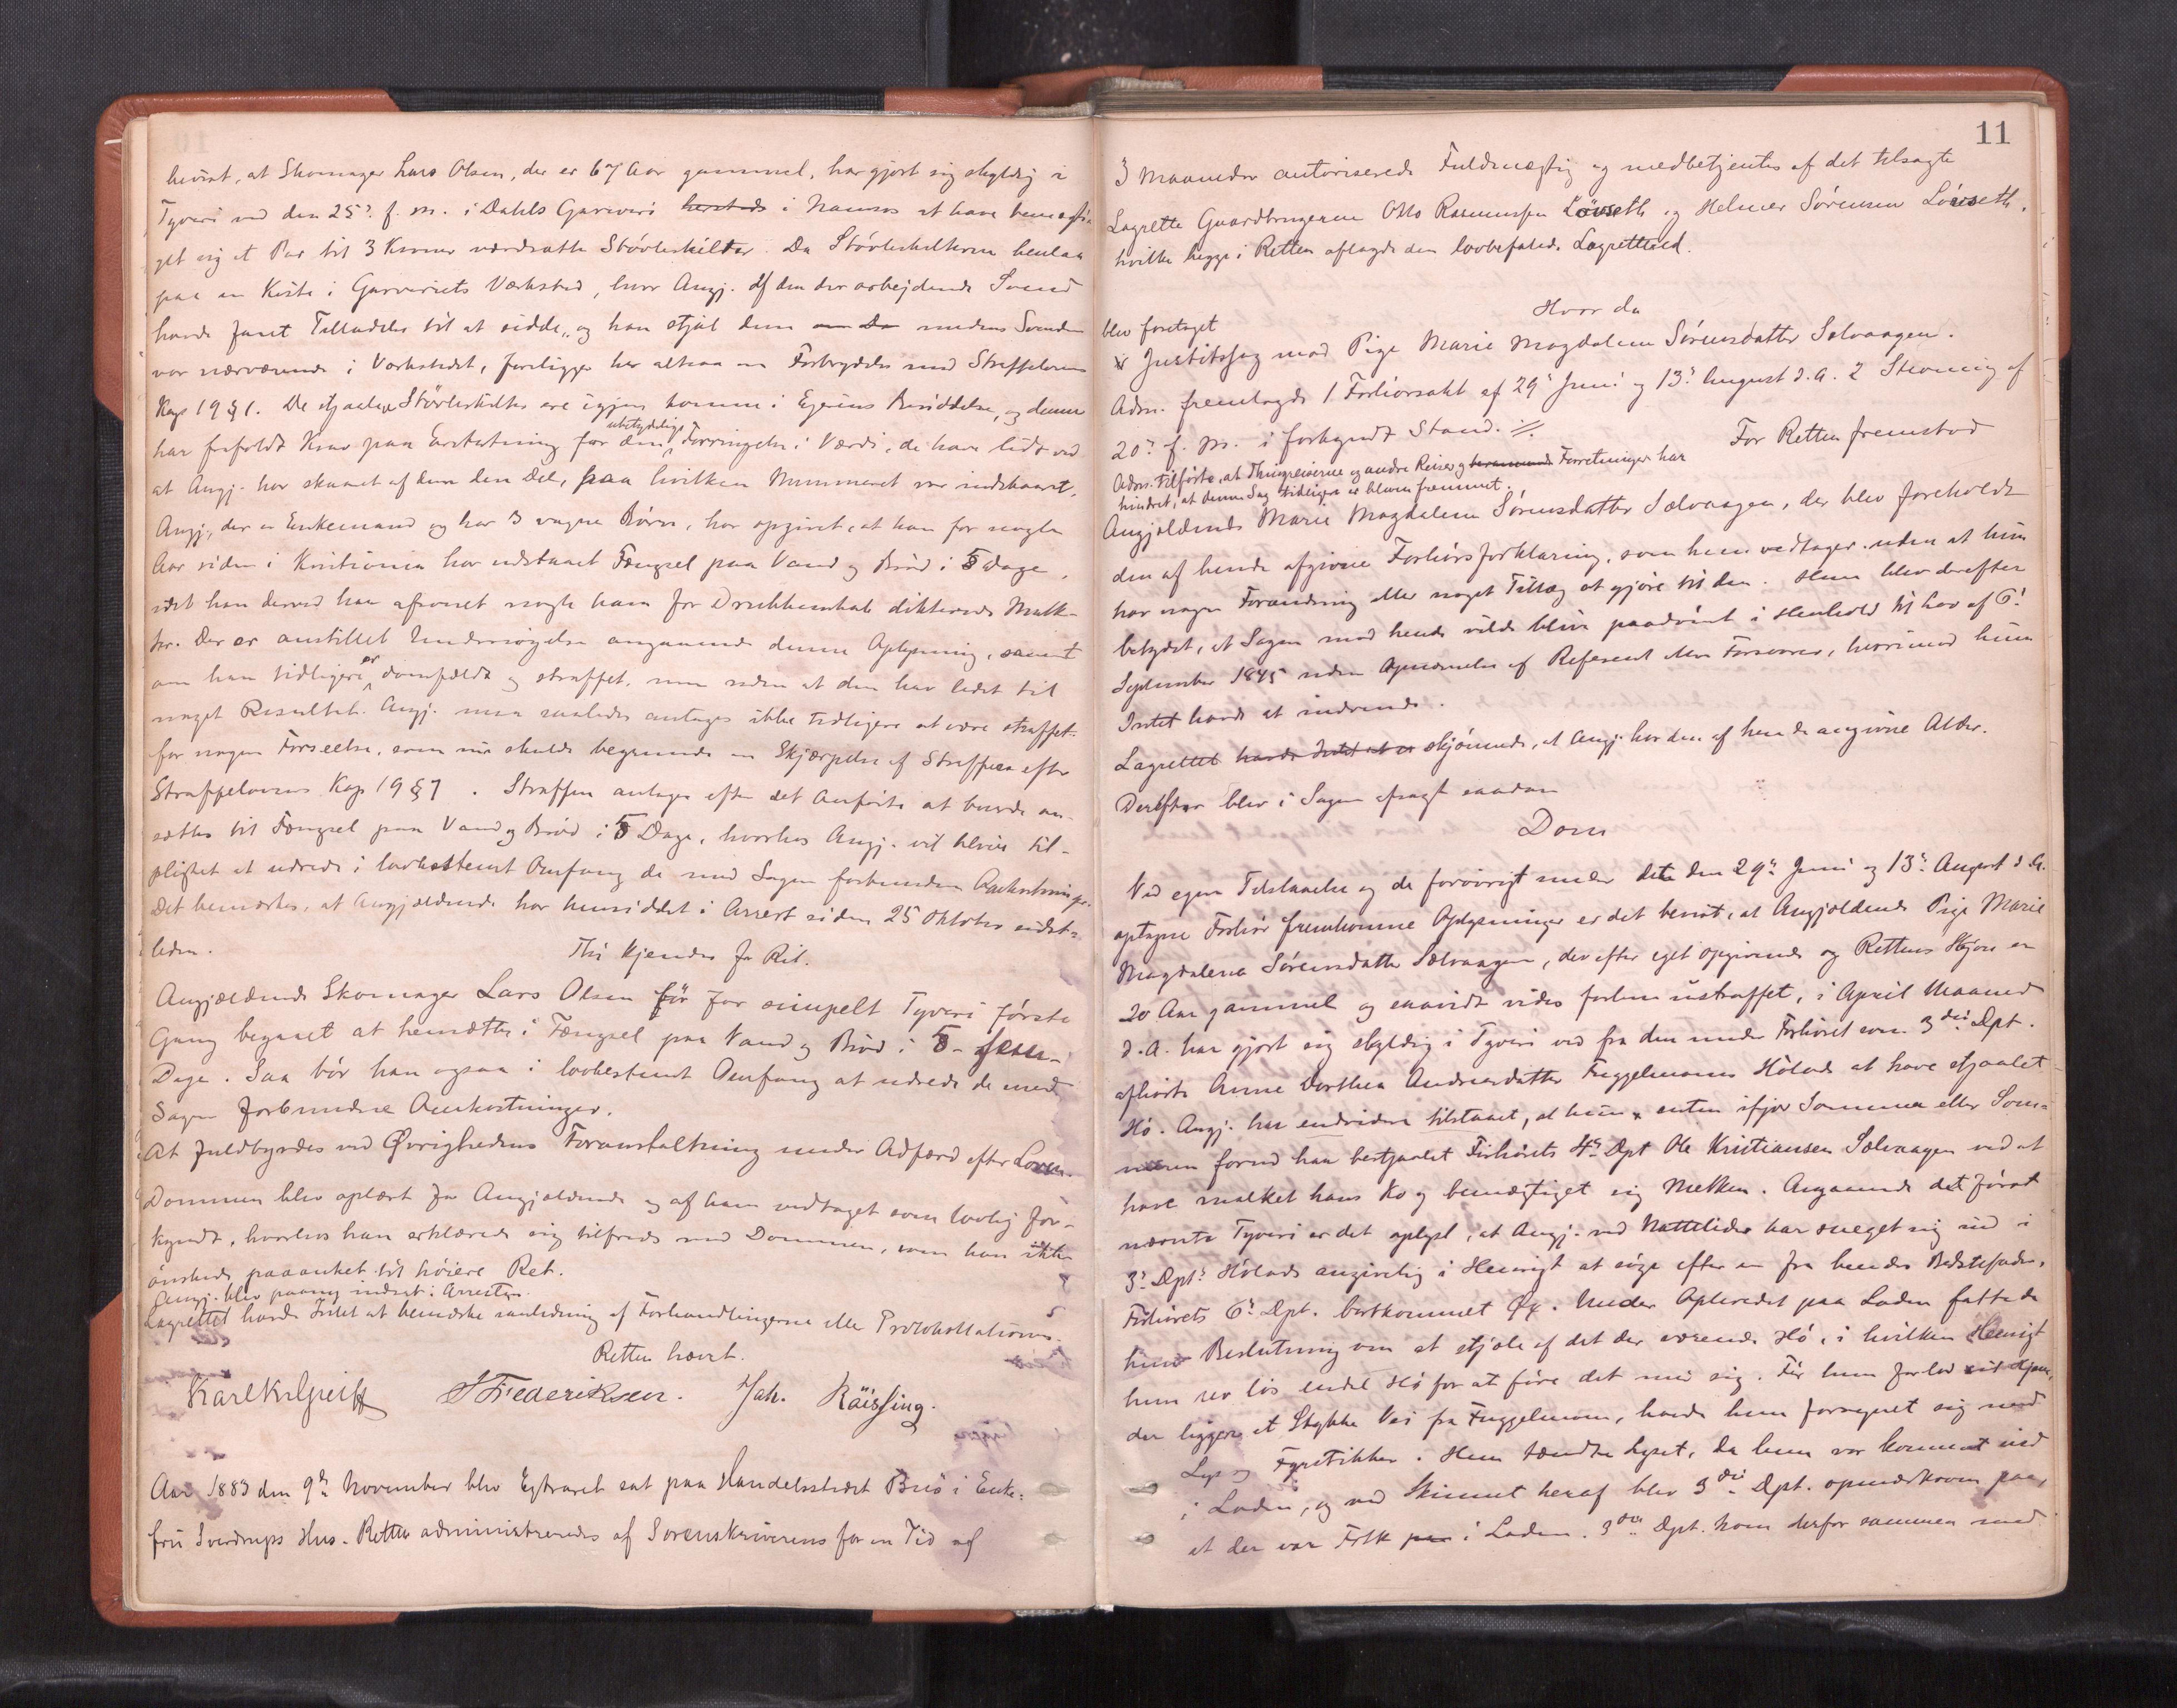 bevist, at Skomager Lars Olsen, der er 67 Aar gammel, har gjort sig skyldig i
Tyveri ved den 25de f. M. i Dahls Garveri hersteds i Namsos at have bemægti-
get sig et Par til 3 Kroner værdsatte Støvleskilter. Da Støvleskilterne henlaa
paa en Kiste i Garveriets Værksted, hvor Angj. af den der arbejdende Svend
havde faaet Tilladelse til at sidde, og han stjal dem medens Svenden
var nærværende i Værkstedet, foreligger her altsaa en Forbrydelse mod Straffelovens
Kap 19 § 1. De stjaalne Støvleskilter ere igjen komne i Ejerens Besiddelse, og denne
har frafaldt Krav paa Erstatning for den ubetydelige Forringelse i Værdi, de have lidt ved
at Angj. har skaaret af dem den Del, paa hvilken Nummeret var indskaaret.
Angj., der er Enkemand og har 3 vagne Børn, har opgivet, at han for nogle
Aar siden i Kristiania har udstaaet Fængsel paa Vand og Brød i 5 Dage,
idet han derved har afsonet nogle ham for Drukkenskab dikterede Mulk-
ter. Der er anstillet Undersøgelse angaaende denne Oplysning, samt
om han tidligere er domfældt og straffet, men uden at den har ledet til
noget Resultat. Angj. maa saaledes antages ikke tidligere at være straffet
for nogen Forseelse, som nu skulde begrunde en Skjærpelse af Straffen efter
Straffelovens Kap 19 § 7. Straffen antages efter det Anførte at burde an-
sættes til Fængsel paa Vand og Brød i 5 Dage, hvorhos Angj. vil blive til-
pligtet at udrede i lovbestemt Omfang de med Sagen forbundne Omkostninger.
Det bemærkes, at Angjældende har hensiddet i Arrest siden 25 Oktober sidst-
leden.
Thi kjendes for Ret.
Angjældende Skomager Lars Olsen bør for simpelt Tyveri første
Gang begaaet at hensættes i Fængsel paa Vand og Brød i 5 - fem -
Dage. Saa bør han ogsaa i lovbestemt Omfang at udrede de med
Sagen forbundne Omkostninger.
At fuldbyrdes ved Øvrighedens Foranstaltning under Adfærd efter Loven.
Dommen blev oplæst for Angjældende og af ham vedtaget som lovlig for-
kyndt, hvorhos han erklærede sig tilfreds med Dommen, som han ikke
ønskede paaanket til høiere Ret.
Angj. blev paany indsat i Arresten.
Lagrettet havde Intet at bemærke i anledning af Forhandlingerne eller Protokollationen.
Retten hævet.
Karl Kr Greiff J Frederiksen. Joh. Räissing.
Aar 1883 den 9de November blev Extraret sat paa Handelsstedet Brø i Enke-
fru Sverdrups Hus. Retten administreredes af Sorenskriverens for en Tid af
11
3 Maaneder autoriserede Fuldmægtig og medbetjentes af det tilsagte
Lagrette Gaardbrugerne Otto Rasmussen Løvseth og Helmer Sørensen Løvseth,
hvilke begge i Retten aflagde den lovbefalede Lagretteed.
Hvor da
blev foretaget
Justitssag mod Pige Marie Magdalena Sørensdatter Selvaagen.
Adm. fremlagde 1 Forhørsakt af 29de Juni og 13de August d. A. 2 Stevning af
20de f. M. i forkyndt Stand. ./.
Adm. tilførte, at Thingreiserne og andre Reiser og berammede Forretninger har
hindret, at denne Sag tidligere er bleven fremmet.
For Retten fremstod
Angjældende Marie Magdalena Sørensdatter Sælvaagen, der blev foreholdt
den af hende afgivne Forhørsforklaring, som hun vedtager uden at hun
har nogen Forandring eller noget Tillæg at gjøre til den. Hun blev derefter
betydet, at Sagen mod hende vilde blive paadømt i Henhold til Lov af 6te
September 1845 uden Opnævnelse af Referent eller Forsvarer, hvorimod hun
Intet havde at indvende.
Lagrettet havde Intet at er skjønnede, at Angj. har den af hende angivne Alder.
Derefter blev i Sagen afsagt saadan
Dom
Ved egen Tilstaaelse og de forøvrigt under det den 29de Juni og 13de August d. A.
optagne Forhør fremkomne Oplysninger er det bevist, at Angjældende Pige Marie
Magdalena Sørensdatter Sælvaagen, der efter eget Opgivende og Rettens Skjøn er
20 Aar gammel og saavidt vides forhen ustraffet, i April Maaned
d. A. har gjort sig skyldig i Tyveri ved fra den under Forhøret som 3die Dpt.
afhørte Anne Dorthea Andreasdatter Fuggelmoens Hølade at have stjaalet
Hø. Angj. har endvidere tilstaaet, at hun enten ifjor Sommer eller Som-
meren forud har bestjaalet Forhørets 4de Dpt Ole Kristiansen Sælvaagen ved at
have malket hans Ko og bemægtiget sig Melken. Angaaende det først
nævnte Tyveri er det oplyst, at Angj. ved Nattetider har sneget sig ind i
3die Dpts Hølade angivelig i Hensigt at søge efter en fra hendes Bedstefader,
Forhørets 6te Dpt. bortkommet Øx. Under Opholdet paa Laden fattede
hun Beslutning om at stjæle af det der værende Hø, i hvilken Hensigt
hun rev løs endel Hø for at føre det med sig. Før hun forlod sit Hjem,
der ligger et Stykke Vei fra Fuggelmoen, havde hun forsynet sig med
Lys og Fyrstikker. Hun tændte Lyset, da hun var kommet ind
i Laden, og ved Skinnet heraf blev 3die Dpt. opmærksom paa,
at der var Folk paa i Laden. 3die Dpt. kom derfor sammen med